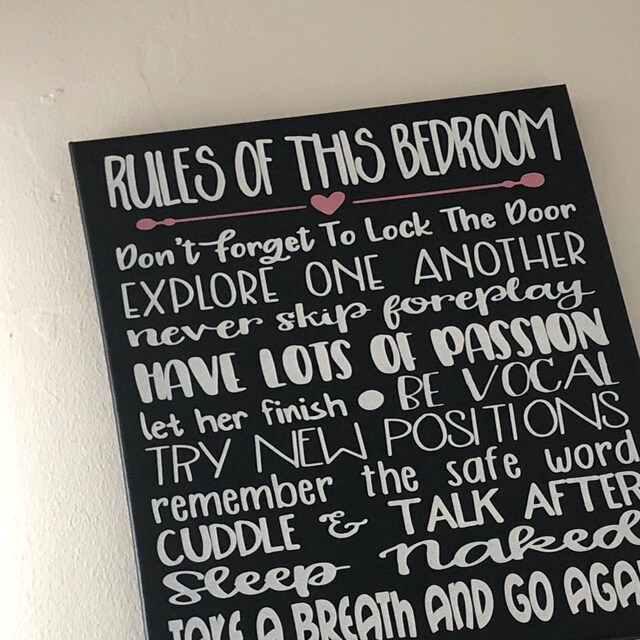 RULES OF THIS BEDROOM
Don't forget To Lock The Door
EXPLORE ONE ANOTHER
never skip foreplay
HAVE LOTS OF PASSION
let her finish • BE VOCAL
TRY NEW POSITIONS
remember the safe word
CUDDLE & TALK AFTER
sleep naked
TAKE A BREATH AND GO AGA